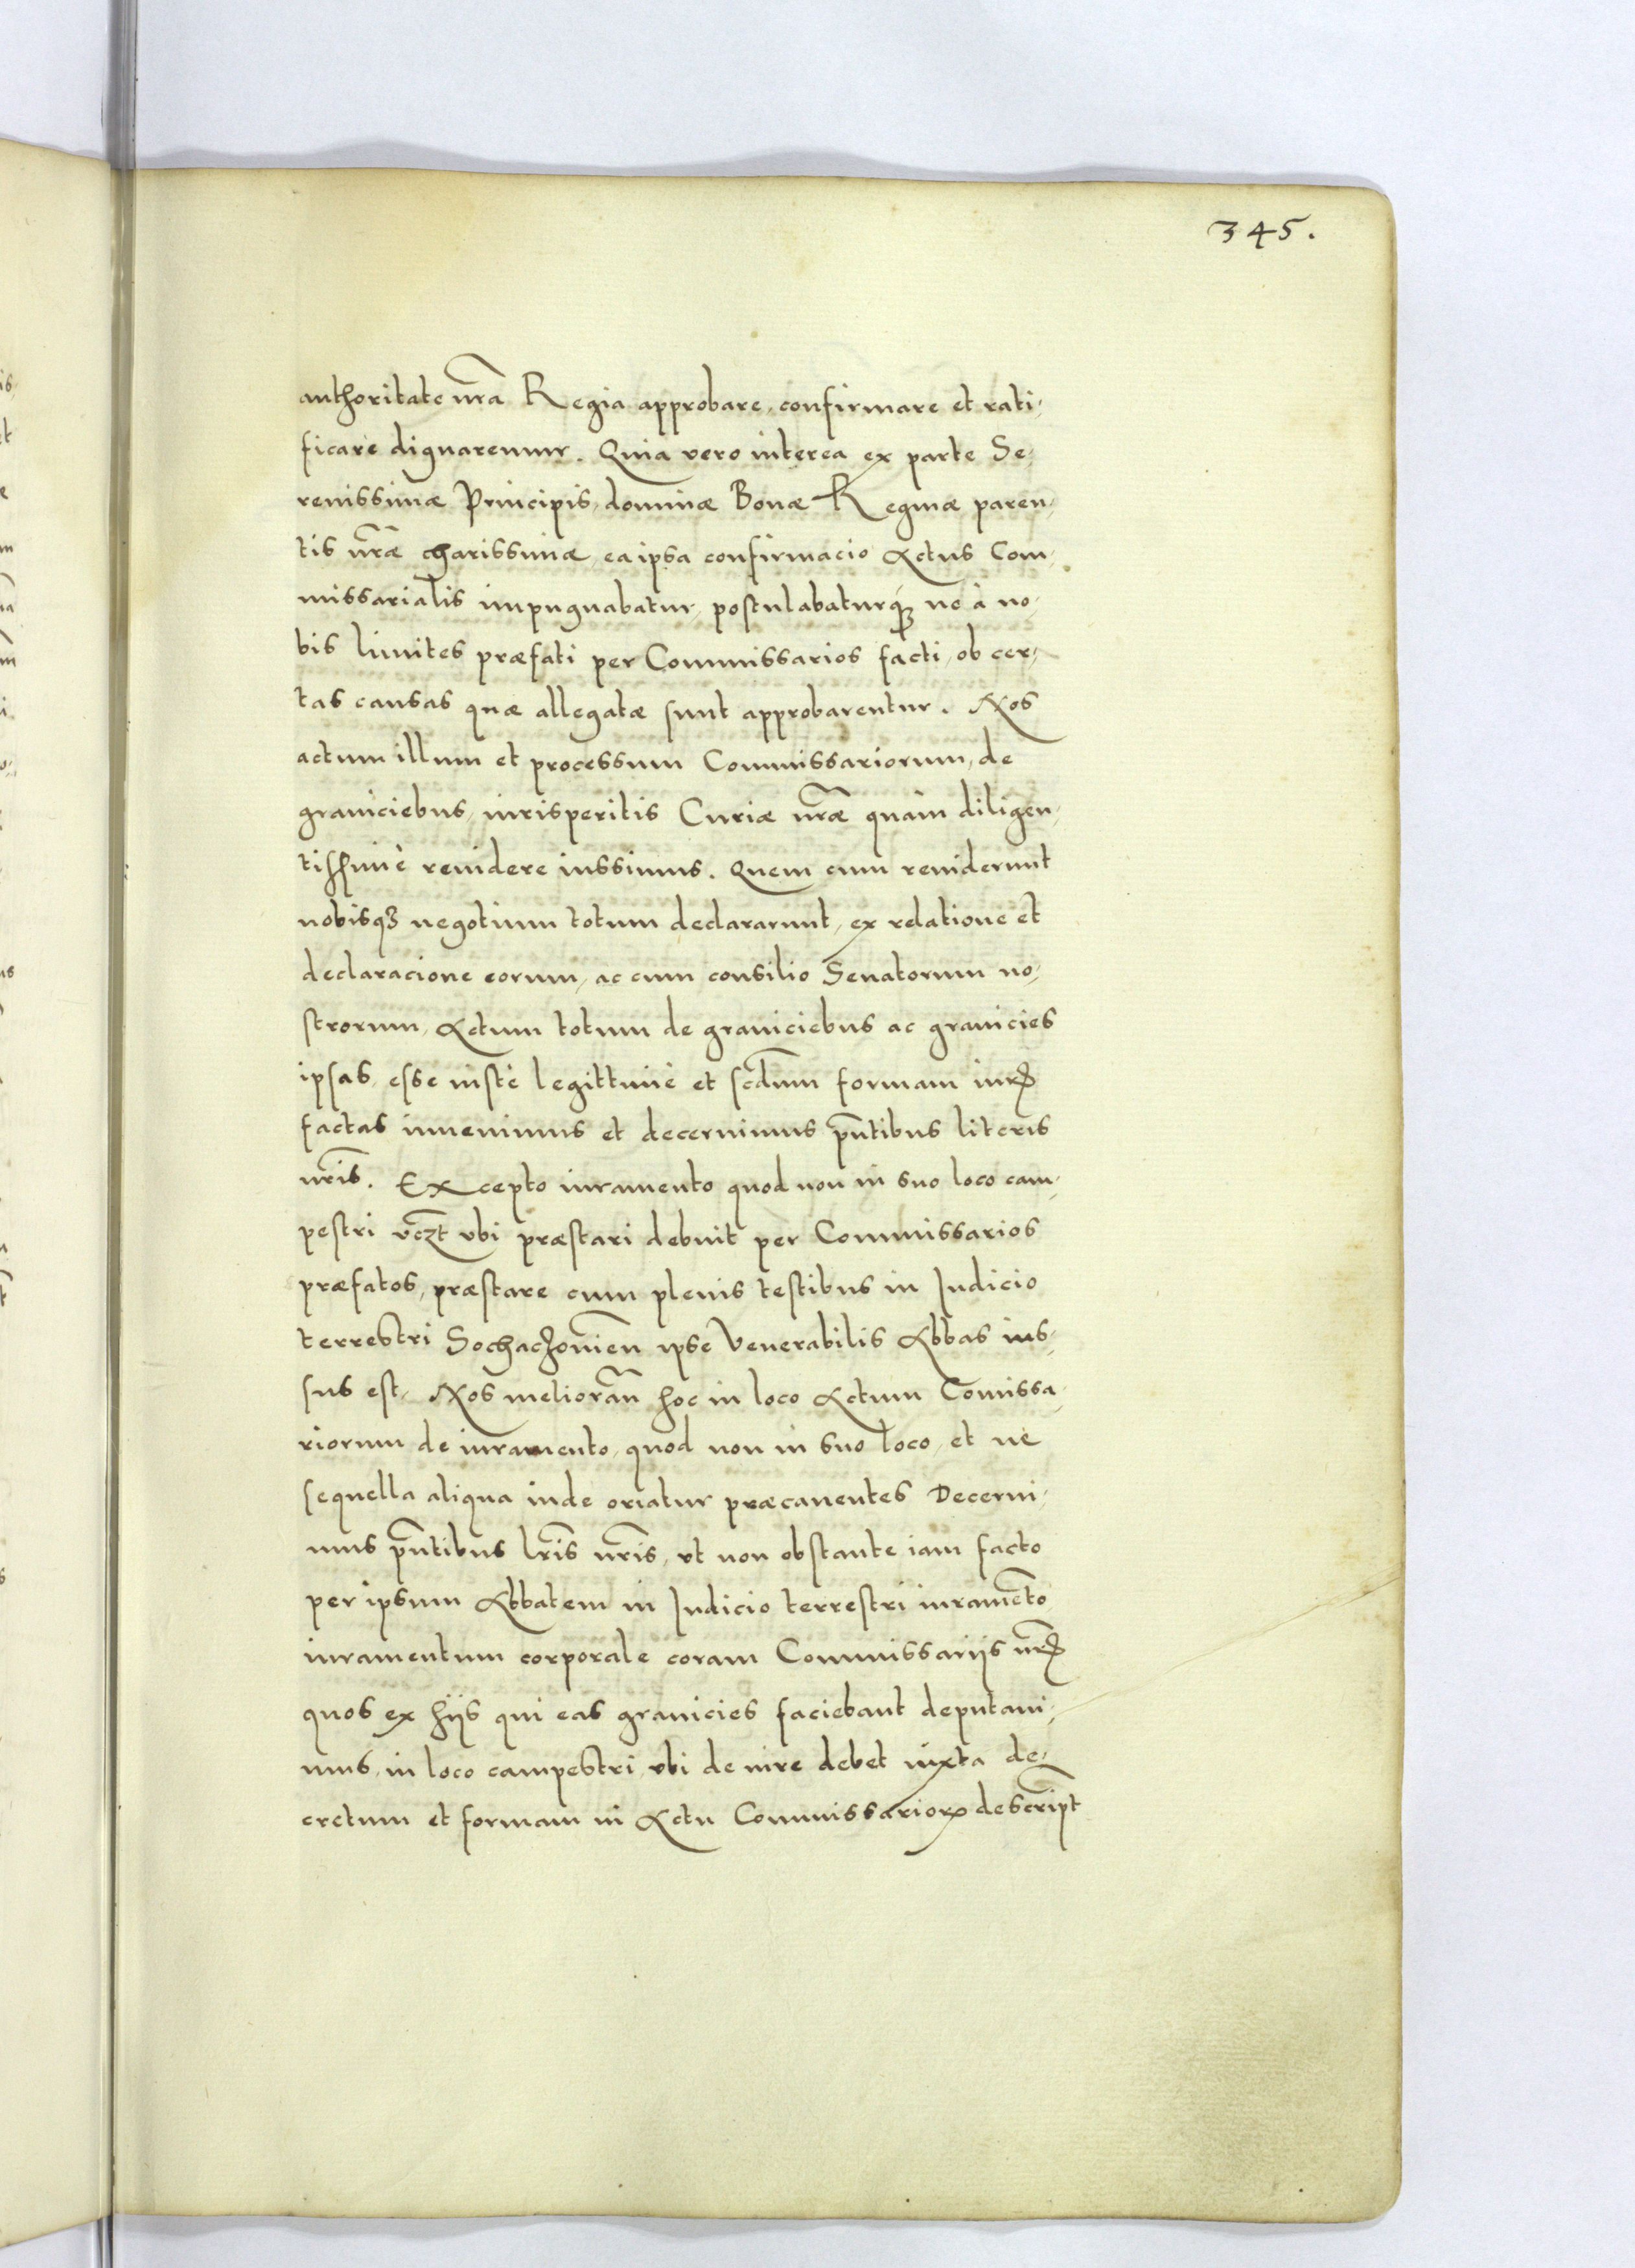 345.
authoritate nr̃a Regia approbare, confirmare et rati,
ficare dignaremur. Quia vero interea ex parte Se,
renissimæ Principis, dominæ Bonæ Reginæ paren,
tis nr̃æ charissimæ, ea ipsa confirmacio Actus Com,
missarialis impugnabatur, postulabaturq́ꝫ ne à no,
bis limites præfati per Commissarios facti, ob cer,
tas causas quæ allegatæ sunt approbarentur. Nos
actum illum et processum Commissariorum, de
graniciebus, iurisperitis Curiæ nr̃æ quàm diligen,
tissimè reuidere iussimus. Quem cum reuiderunt
nobisqꝫ negotium totum declararunt, ex relatione et
declaracione eorum, ac cum consilio Senatorum no,
strorum, Actum totum de graniciebus ac granicies
ipsas, esse iustè legittimè et scd̃um formam iurꝭ
factas inuenimus et decernimus pñtibus literis
nr̃is. Excepto iuramento quod non in suo loco cam,
pestri vcꝫt vbi præstari debuit per Commissarios
præfatos, præstare cum plenis testibus in Iudicio
terrestri Sochaczouieñ ipse Venerabilis Abbas ius,
sus est, Nos meliorañ hoc in loco Actum Comissa,
riorum de iuramento, quod non in suo loco, et nè
sequella aliqua inde oriatur præcauentes Decerni,
mus pñtibus lr̃is nr̃is, vt non obstante iam facto
per ipsum Abbatem in Iudicio terrestri iuramẽto
iuramentum corporale coram Commissariijs nr̃ꝭ
quos ex hijs qui eas granicies faciebant deputaui,
mus, in loco campestri vbi de iure debet iuxta de,
cretum et formam in Actu Commissarioꝝ descript̃